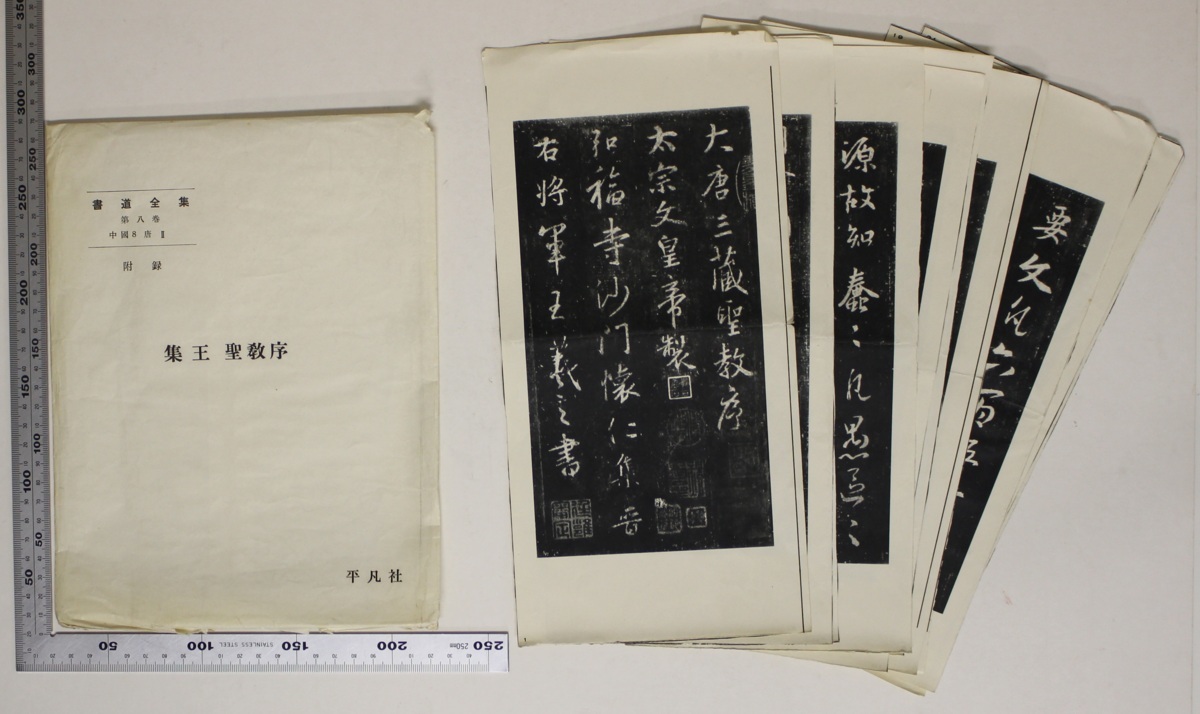 書道全集
第八卷
中國8 唐 Ⅱ
附録
集王聖教序
平凡社
大唐三藏聖教序
太宗文皇帝製
弘福寺沙門懷仁集晉
右將軍王羲之書
源故知蠢〻凡愚區〻
要文凡六百五
50
100
150
200
250
250mm
STAINLESS STEEL
50
100
150
200
250
300
350
50
100
150
200
250
300